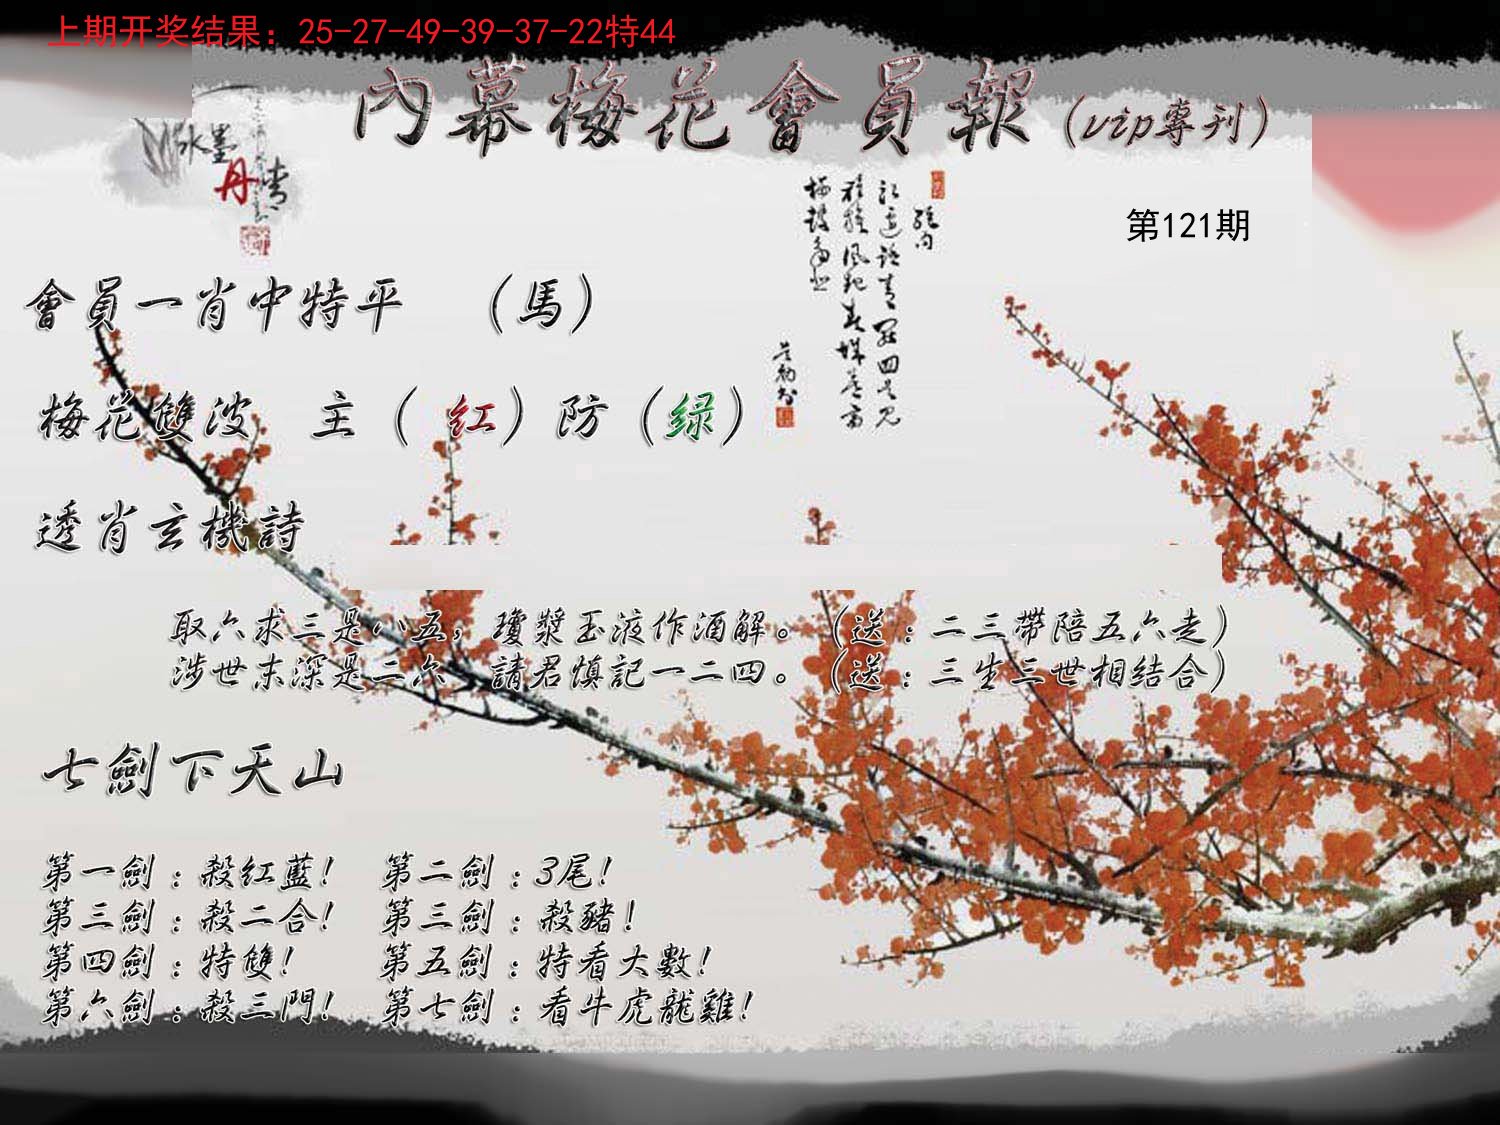 上期开奖结果：25-27-49-39-37-22特44
內幕梅花會員報（vip專刊）
水墨
丹
情
第121期
會員一肖中特平　（馬）
梅花雙波　主（紅）防（绿）
透肖玄機詩
取六求三是八五，瓊漿玉液作酒解。（送：二三帶陪五六走）
涉世末深是二六　請君慎記一二四。（送：三生三世相結合）
七劍下天山
第一劍：殺紅藍！　第二劍：3尾！
第三劍：殺二合！　第三劍：殺豬！
第四劍：特雙！　第五劍：特看大數！
第六劍：殺三門！　第七劍：看牛虎龍雞！